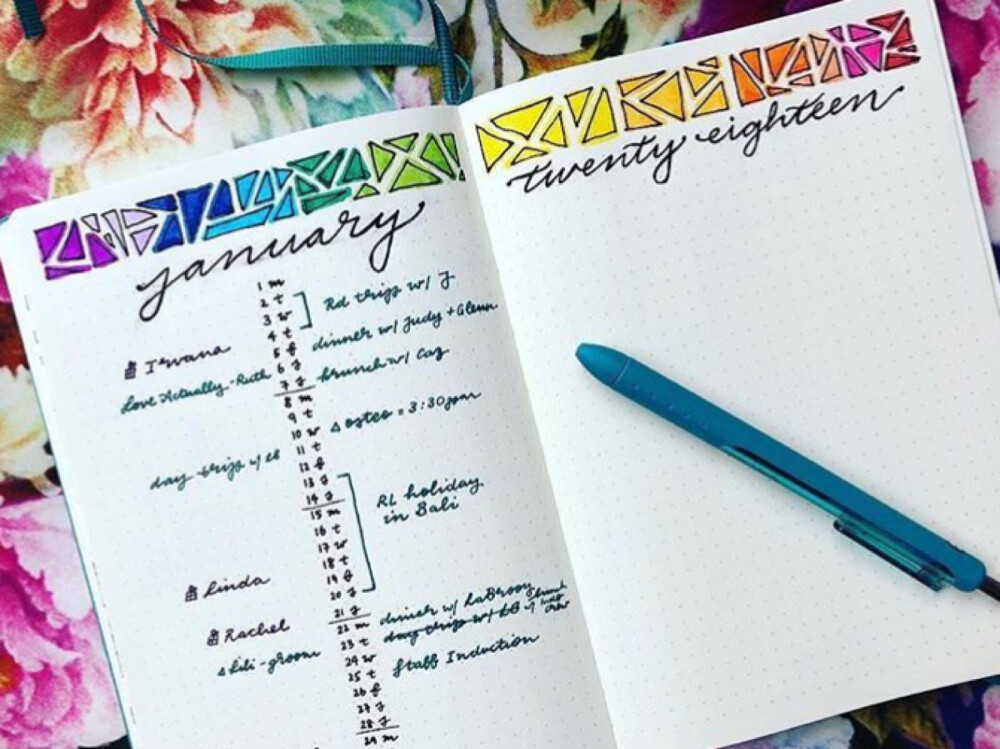 january
twenty eighteen
1 m
2 t
3 w Rd trip w/ J
4 t
5 f dinner w/ Judy + Glenn
Irvana 6
Love Actually - Ruth 7 brunch w/ Caz
8 m
9 t
10 w osteo = 3:30pm
11 t
day trip w/ 12 f
13
14 RL holiday
15 m in Bali
16 t
17 w
18 t
19 f
Linda 20
21 dinner w/
Rachel 22 m day trip w/
23 t
Lili - groom 24 w Staff Induction
25 t
26 f
27
28
29 m